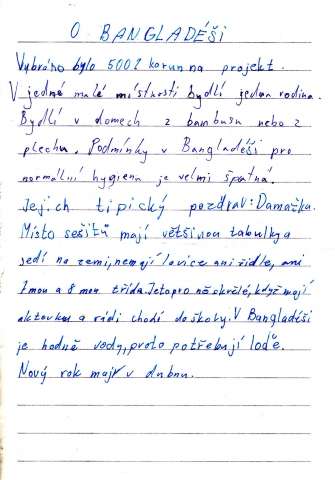 O BANGLADÉŠI
Vybráno bylo 5002 korun na projekt.
V jedné malé místnosti bydlí jedna rodina.
Bydlí v domech z bambusu nebo z
plechu. Podmínky v Bangladéši pro
normální hygienu je velmi špatná.
Jejich typický pozdrav: Damaška.
Místo sešitů mají většinou tabulky a
sedí na zemi, nemají lavice ani židle, ani
7mou a 8mou třída. Jeto pro ně skvělé, když mají
aktovku a rádi chodí do školy. V Bangladéši
je hodně vody, proto potřebují loďe.
Nový rok mají v dubnu.